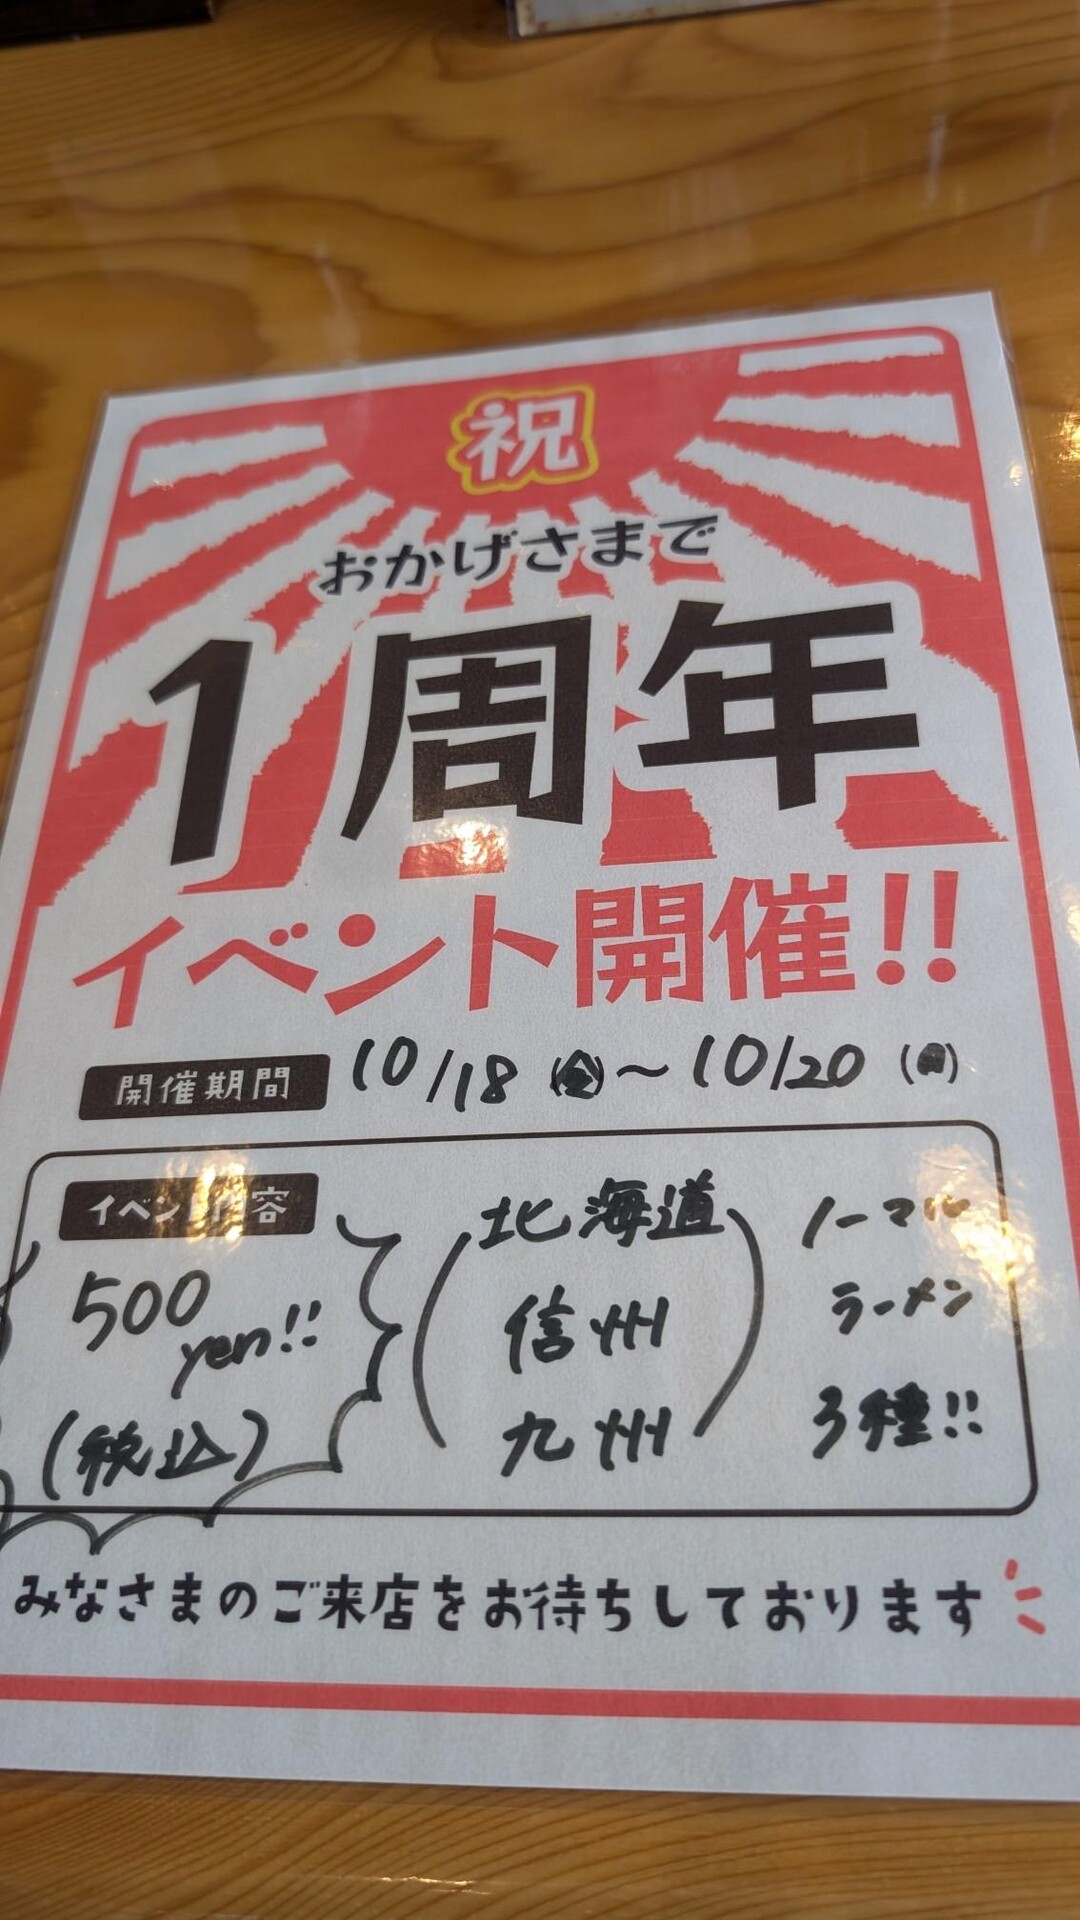 祝
おかげさまで
1周年
イベント開催!!
開催期間 10/18(金)～10/20(日)
イベント内容
500
yen!!
(税込)
北海道
信州
九州
ノーマル
ラーメン
3種!!
みなさまのご来店をお待ちしております